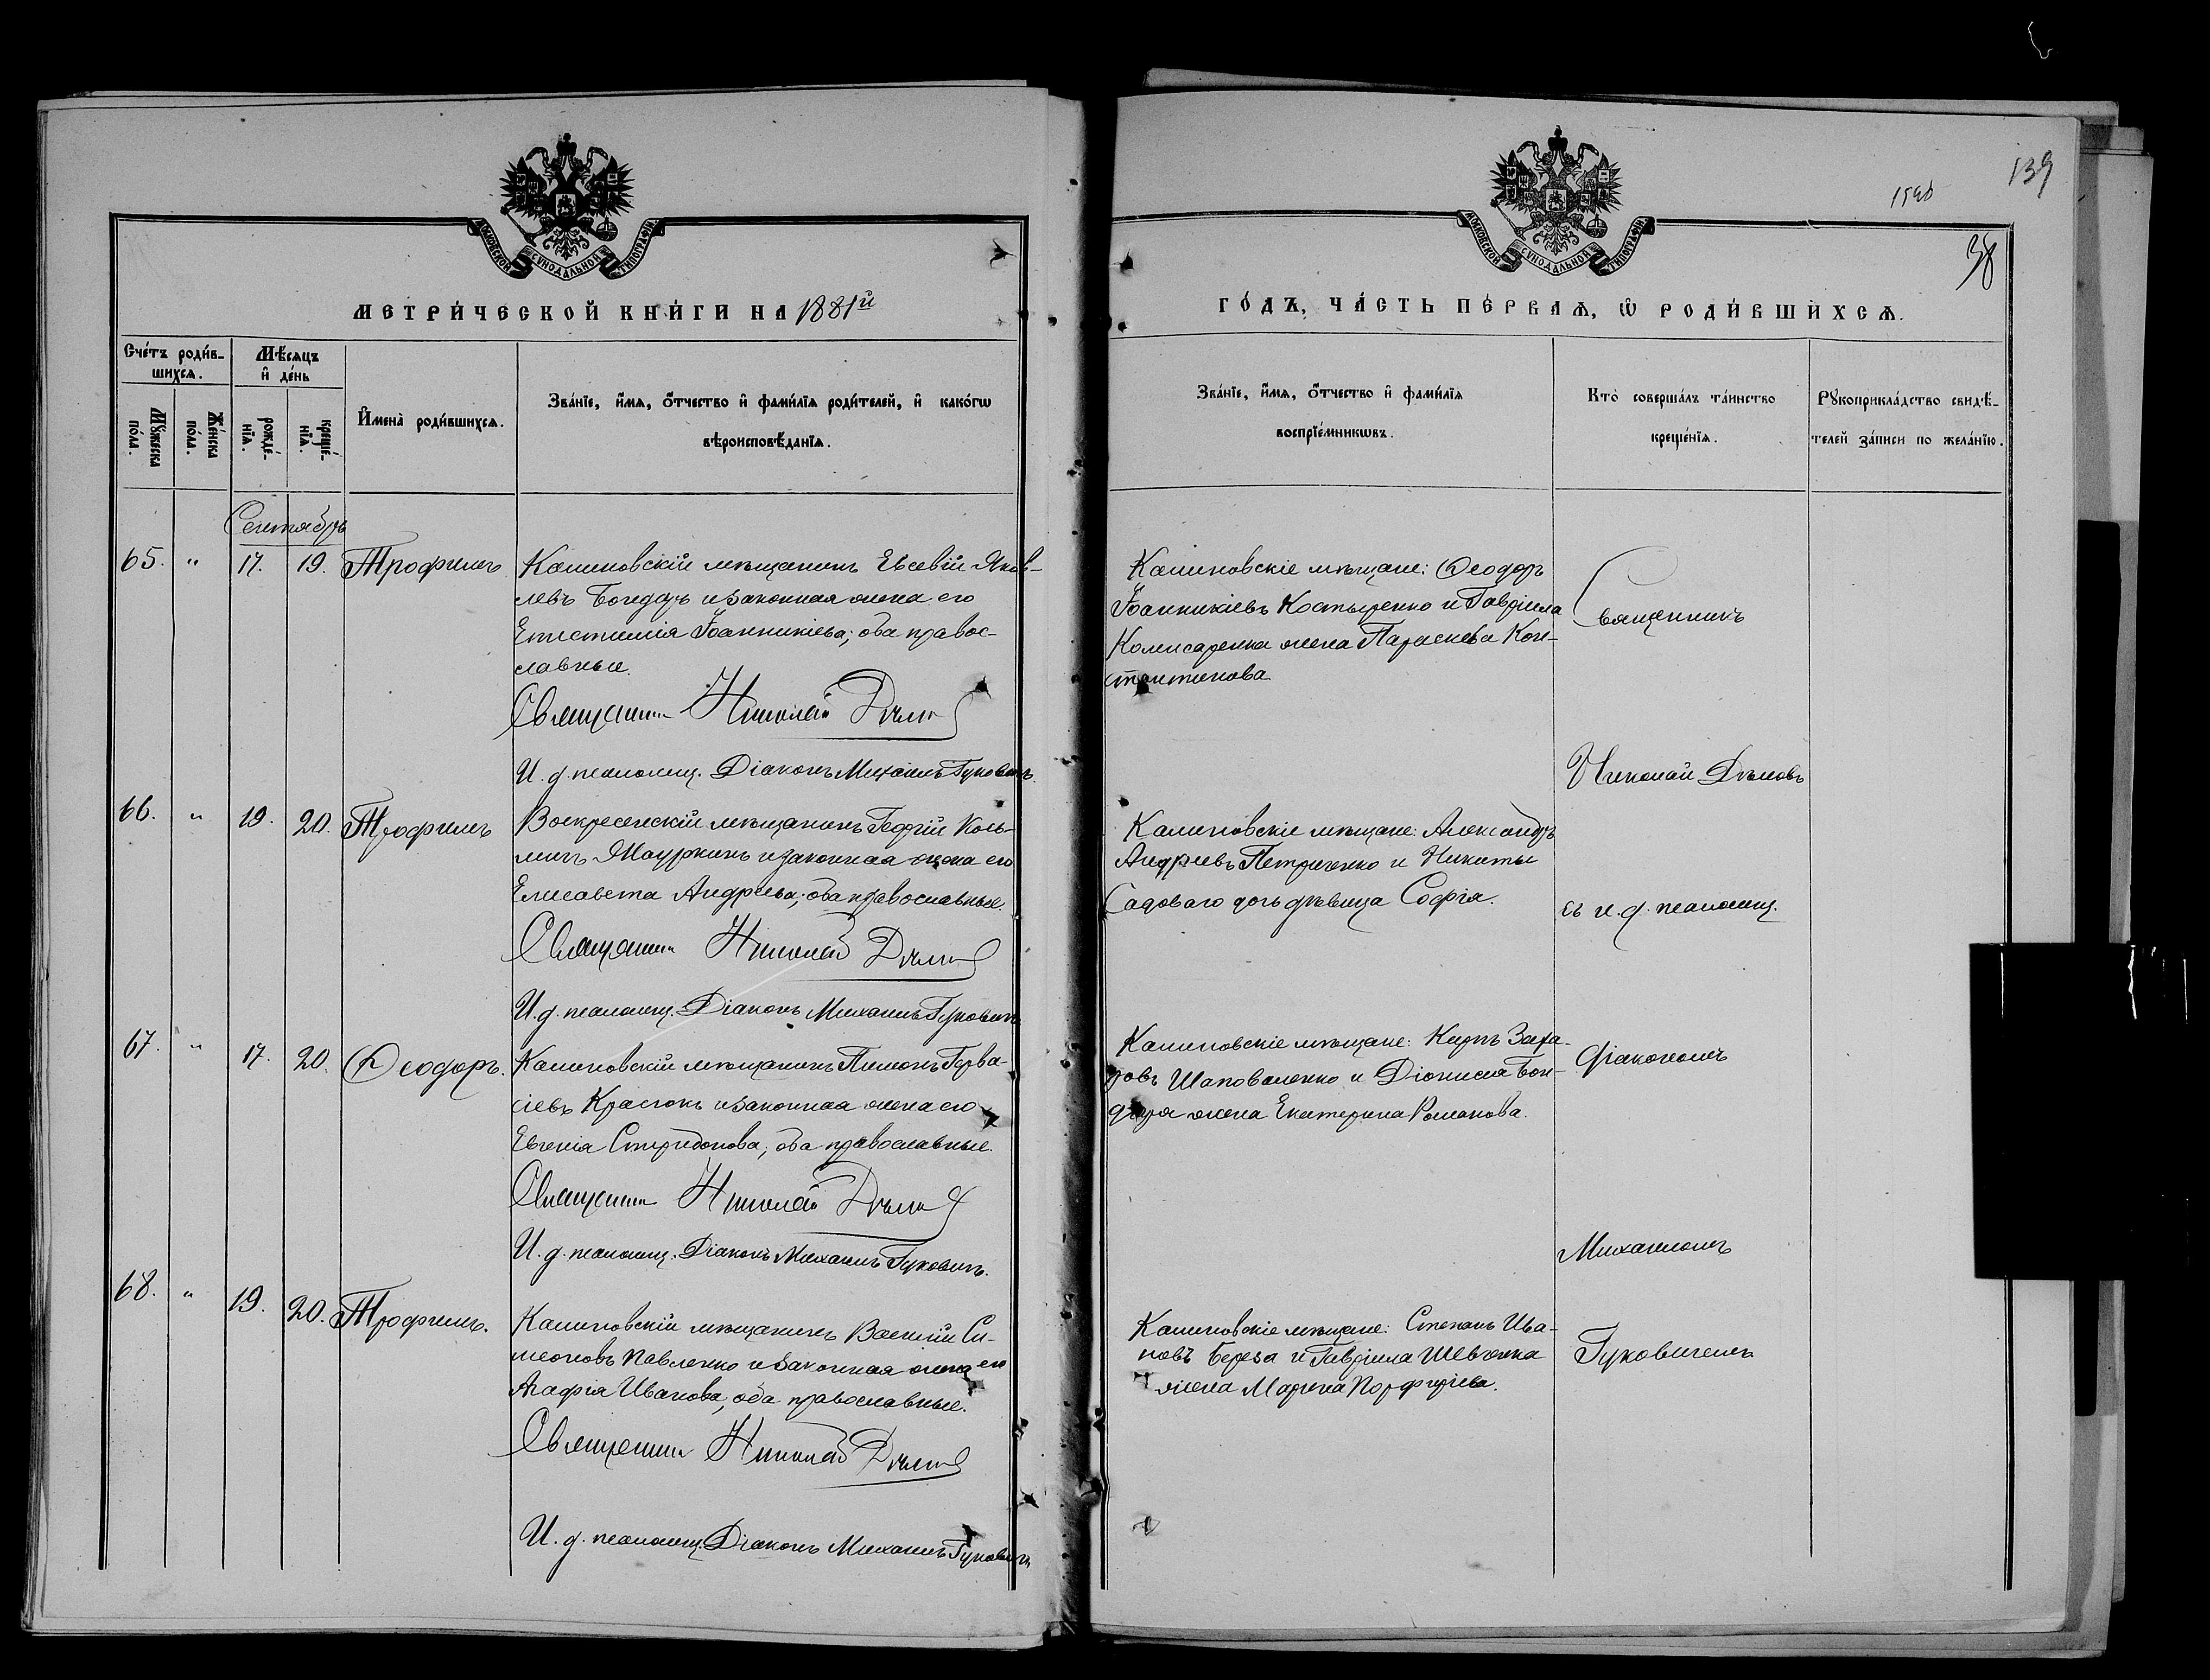 МОСКОВСКОЙ СѴНОДАЛЬНОЙ ТИПОГРАФІИ
МЕТРИ́ЧЕСКОЙ КНИ́ГИ НА 1881й
Сче́тъ роди́в-
шихсѧ.
Мѣ́сѧцъ
и҆ де́нь
И҆мена̀ роди́вшихсѧ.
Зва́нїе, и҆́мѧ, ѻ҆́тчество и҆ фами́лїѧ роди́телей, и҆ како́гѡ
вѣроисповѣ́данїѧ.
Мꙋ́жеска
по́ла.
Же́нска
по́ла.
рожде́-
нїѧ.
креще́-
нїѧ.
Сентябрь
65. " 17. 19. Трофимъ
Калиновскій мѣщанинъ Евсевій Яков-
левъ Бондарь и законная жена его
Епистимія Іоанникіева; оба правос-
лавные.
Священникъ Николай
И. д. псаломщ. Діаконъ Михаилъ Гуковичъ.
66. " 19. 20. Трофимъ
Воскресенскій мѣщанинъ Георгій Козь-
минъ и законная жена его
Елисавета Андреева; оба православные.
Священникъ Николай
И. д. псаломщ. Діаконъ Михаилъ Гуковичъ
67. " 17. 20. Ѳеодоръ.
Калиновскій мѣщанинъ Пимонъ Герва-
сіевъ и законная жена его
Евгенія Спиридонова; оба православные.
Священникъ Николай
И. д. псаломщ. Діаконъ Михаилъ Гуковичъ.
68. " 19. 20. Трофимъ.
Калиновскій мѣщанинъ Василій Си-
меоновъ Павленко и законная жена его
Агафія Иванова; оба православные.
Священникъ Николай
И. д. псаломщ. Діаконъ Михаилъ Гуковичъ
139
38
МОСКОВСКОЙ СѴНОДАЛЬНОЙ ТИПОГРАФІИ
ГО́ДЪ, ЧА́СТЬ ПЕ́РВАѦ, Ѡ҆ РОДИ́ВШИХСѦ.
Зва́нїе, и҆́мѧ, ѻ҆́тчество и҆ фами́лїѧ
воспрїе́мникѡвъ.
Кто̀ соверша́лъ та́инство
креще́нїѧ.
Рꙋкоприкла́дство свидѣ́-
телей за́писи по жела́нїю.
Калиновскіе мѣщане: Ѳеодоръ
Іоанникіевъ Костыренко и Гавріила
Комисаренка жена Параскева Кон-
стантинова.
Священникъ
Николай Дѣмовъ
Калиновскіе мѣщане: Александръ
Андреевъ Петриченко и Никиты
Садоваго дочь дѣвица Софія.
съ и. д. псаломщ.
Калиновскіе мѣщане: Карпъ Заха-
ровъ Шаповаленко и Діонисія Бон-
даря жена Екатерина Романова.
Діакономъ
Михаиломъ
Калиновскіе мѣщане: Стефанъ Ива-
новъ Береза и Гавріила Шевченка
жена Марина Порфиріева.
Гуковичемъ